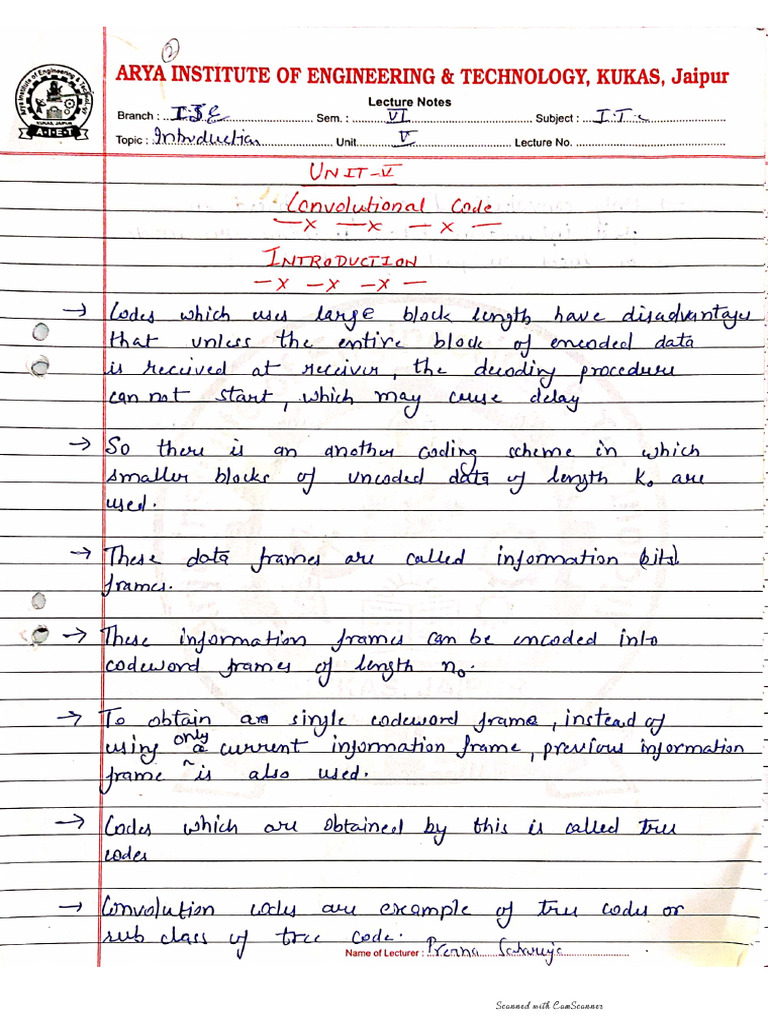 2
ARYA INSTITUTE OF ENGINEERING & TECHNOLOGY, KUKAS, Jaipur
Lecture Notes
Branch : Sem. : VI Subject : I.T.C
Topic : Introduction Unit V Lecture No.
Arya Institute of Engineering & Technology
KUKAS, JAIPUR
A-I-E-T
UNIT-V
Convolutional Code
—x —x — x —
INTRODUCTION
— x — x — x —
→ Codes which uses large block length have disadvantages
that unless the entire block of encoded data
is received at receiver, the decoding procedure
can not start, which may cause delay
→ So there is an another coding scheme in which
smaller blocks of uncoded data of length K₀ are
used.
→ These data frames are called information bits
frames.
→ These information frames can be encoded into
codeword frames of length n₀.
→ To obtain a single codeword frame, instead of
using only a current information frame, previous information
frame is also used.
→ Codes which are obtained by this is called tree
codes
→ Convolution codes are example of tree codes or
sub class of tree code.
Name of Lecturer : Prerna
Scanned with CamScanner